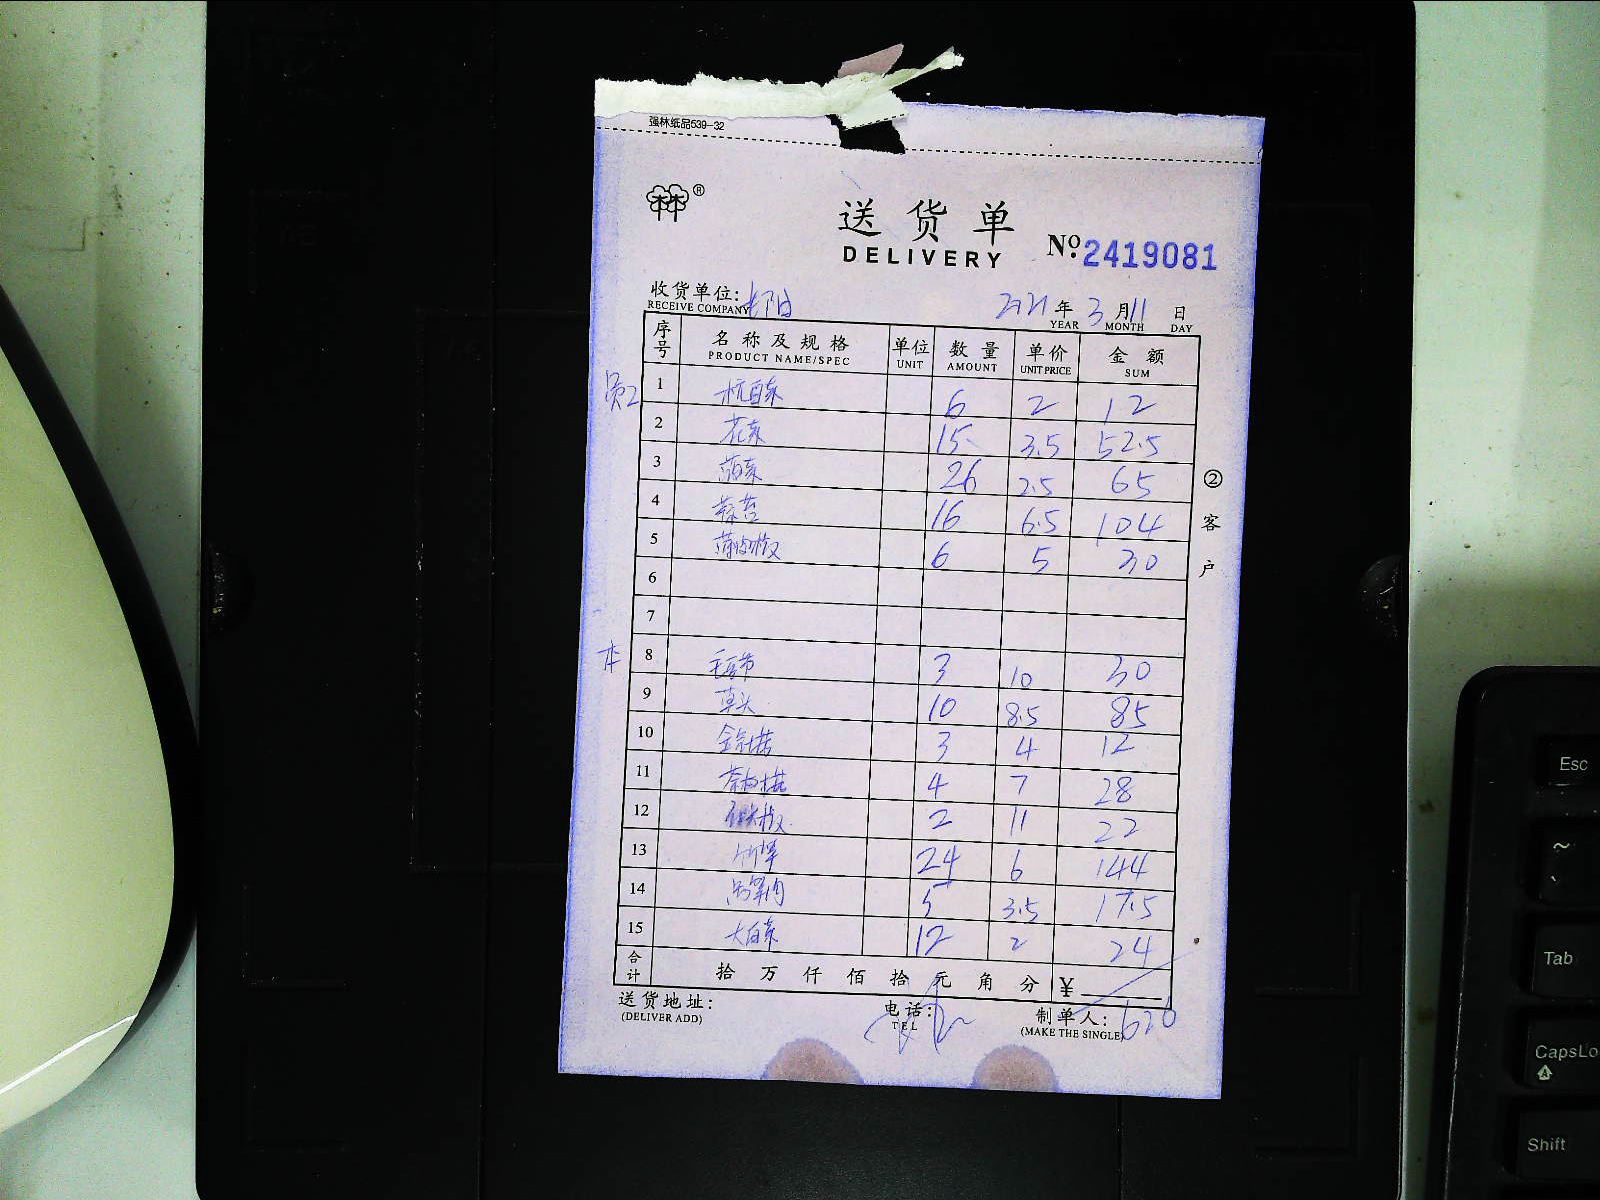 强林纸品539-32
®
送货单
DELIVERY
No: 2419081
收货单位:
RECEIVE COMPANY
2021 年 3 月 11 日
YEAR MONTH DAY
序号 名称及规格 单位 数量 单价 金额
PRODUCT NAME/SPEC UNIT AMOUNT UNIT PRICE SUM
员工
1 杭白菜 6 2 12
2 花菜 15 3.5 52.5
3 26 2.5 65
4 16 6.5 104
5 6 5 30
6
7
本
8 毛豆节 3 10 30
9 草头 10 8.5 85
10 3 4 12
11 4 7 28
12 2 11 22
13 24 6 144
14 5 3.5 17.5
15 大白菜 12 2 24
合计 拾 万 仟 佰 拾 元 角 分 ¥
② 客户
送货地址:
(DELIVER ADD)
电话:
TEL
制单人:
(MAKE THE SINGLE)
Esc
~
Tab
CapsLo
Shift